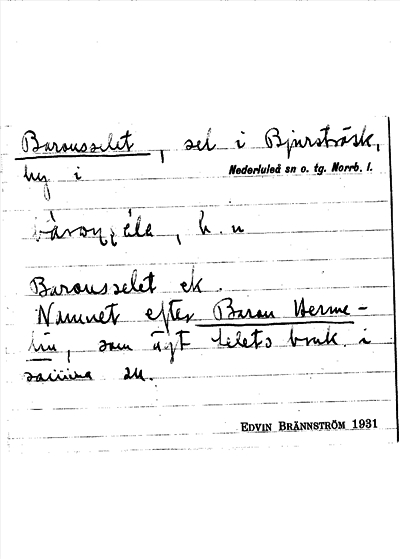 Barousselet, sel i Bjursträsk,
by i Nederluleå sn o. tg. Norrb. l.
h. n
Barousselet ek.
Namnet efter Baron Herme-
lin, som ägt Selets bruk i
samma sn.
EDVIN BRÄNNSTRÖM 1931